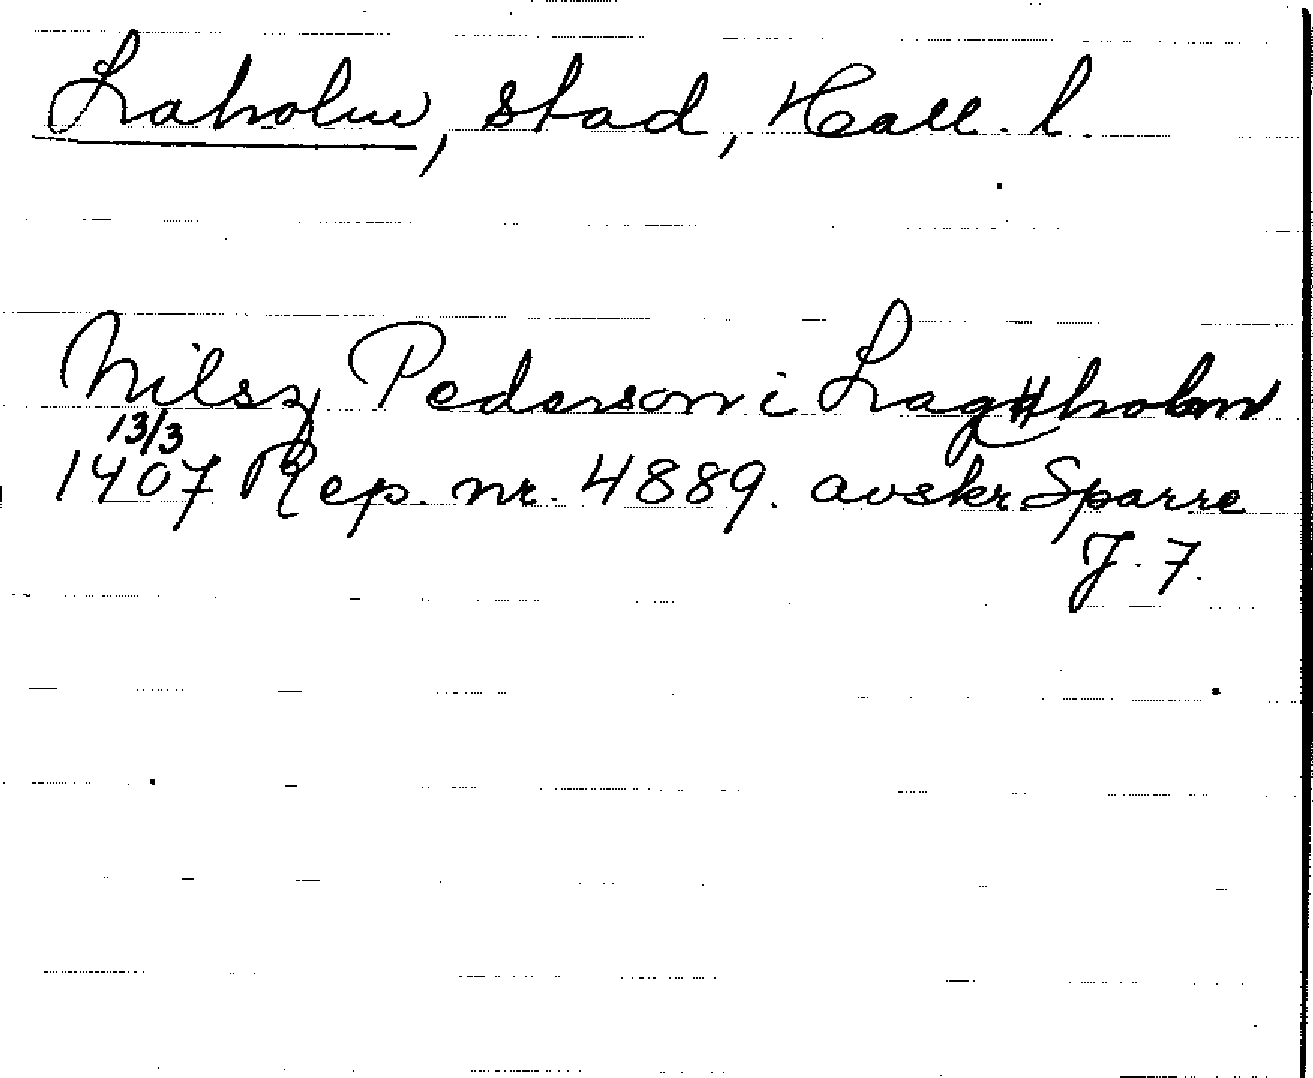 Laholm, stad, Hall. l.
Nilsz Pederson i Lagholm
13/3
1407 Rep. nr. 4889. avskr Sparre
J. 7.